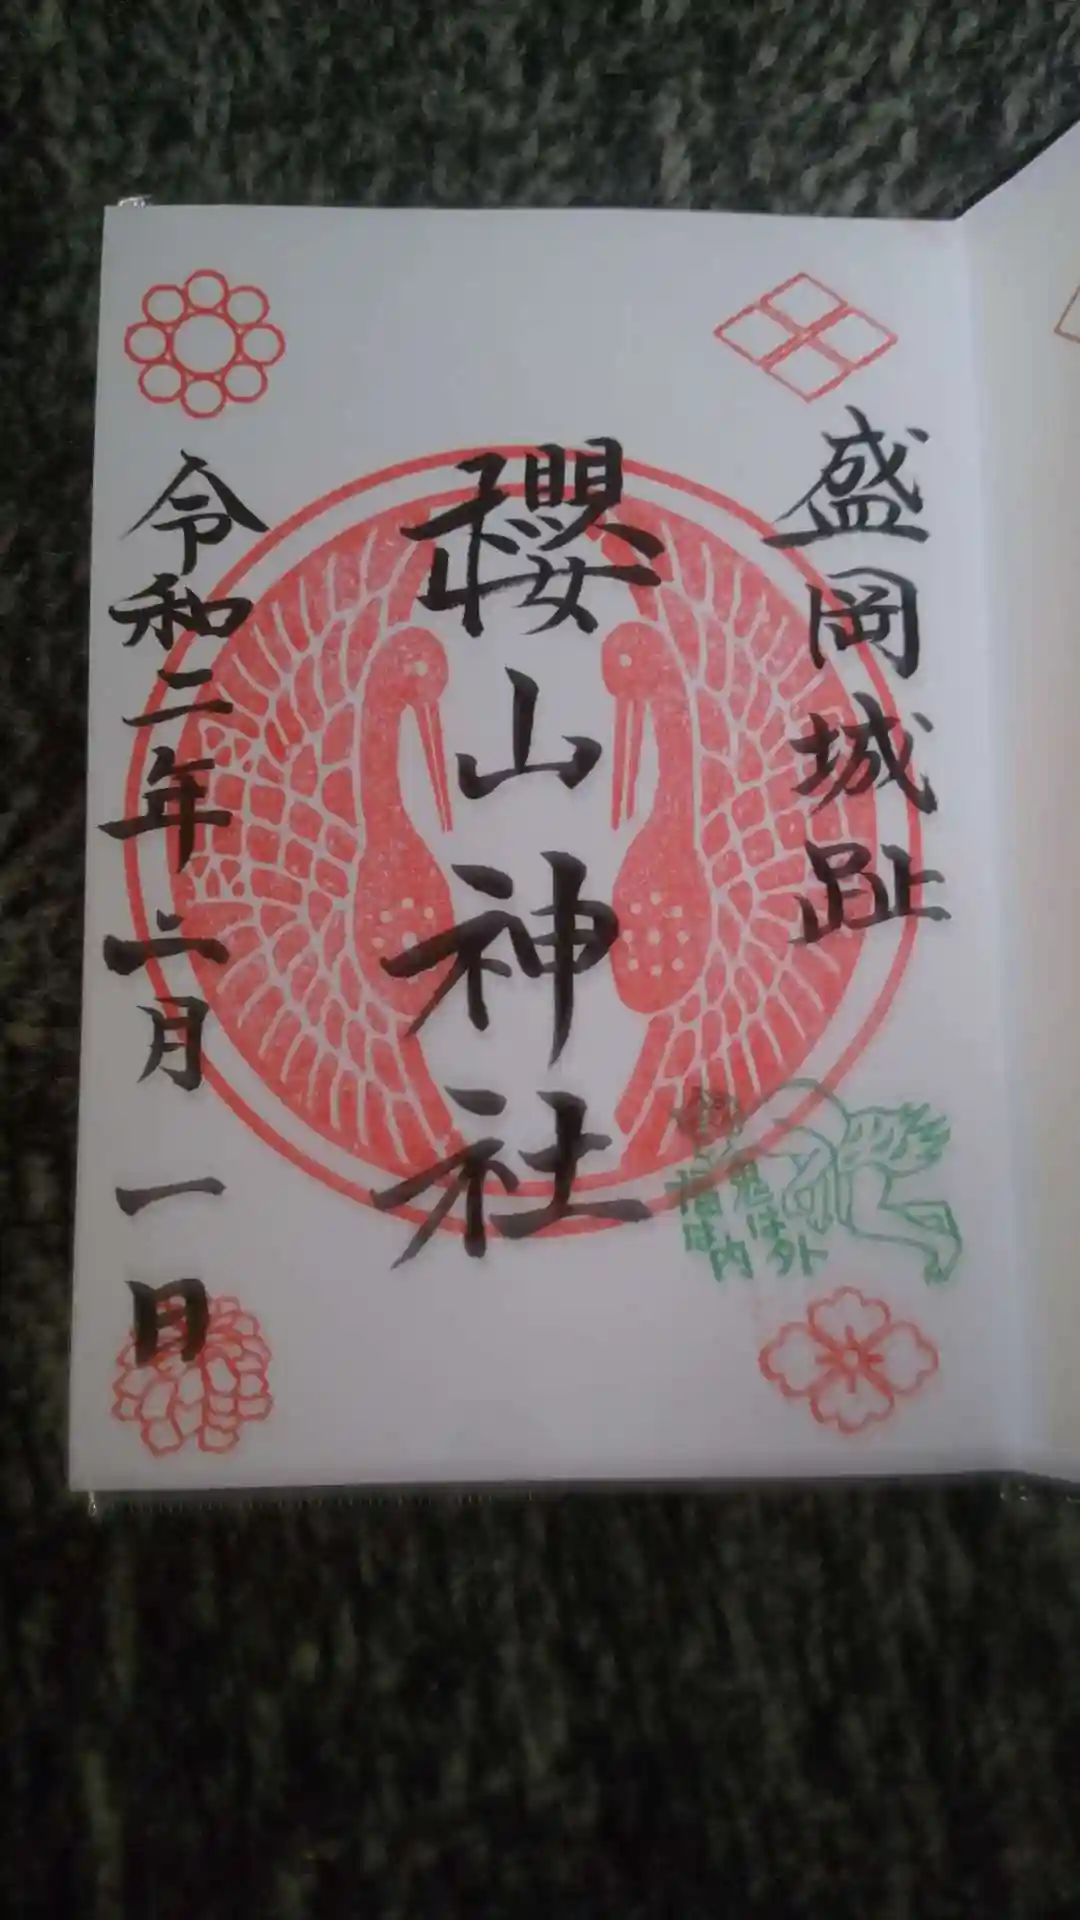 盛岡城趾
櫻山神社
令和二年二月一日
鬼は外
福は内